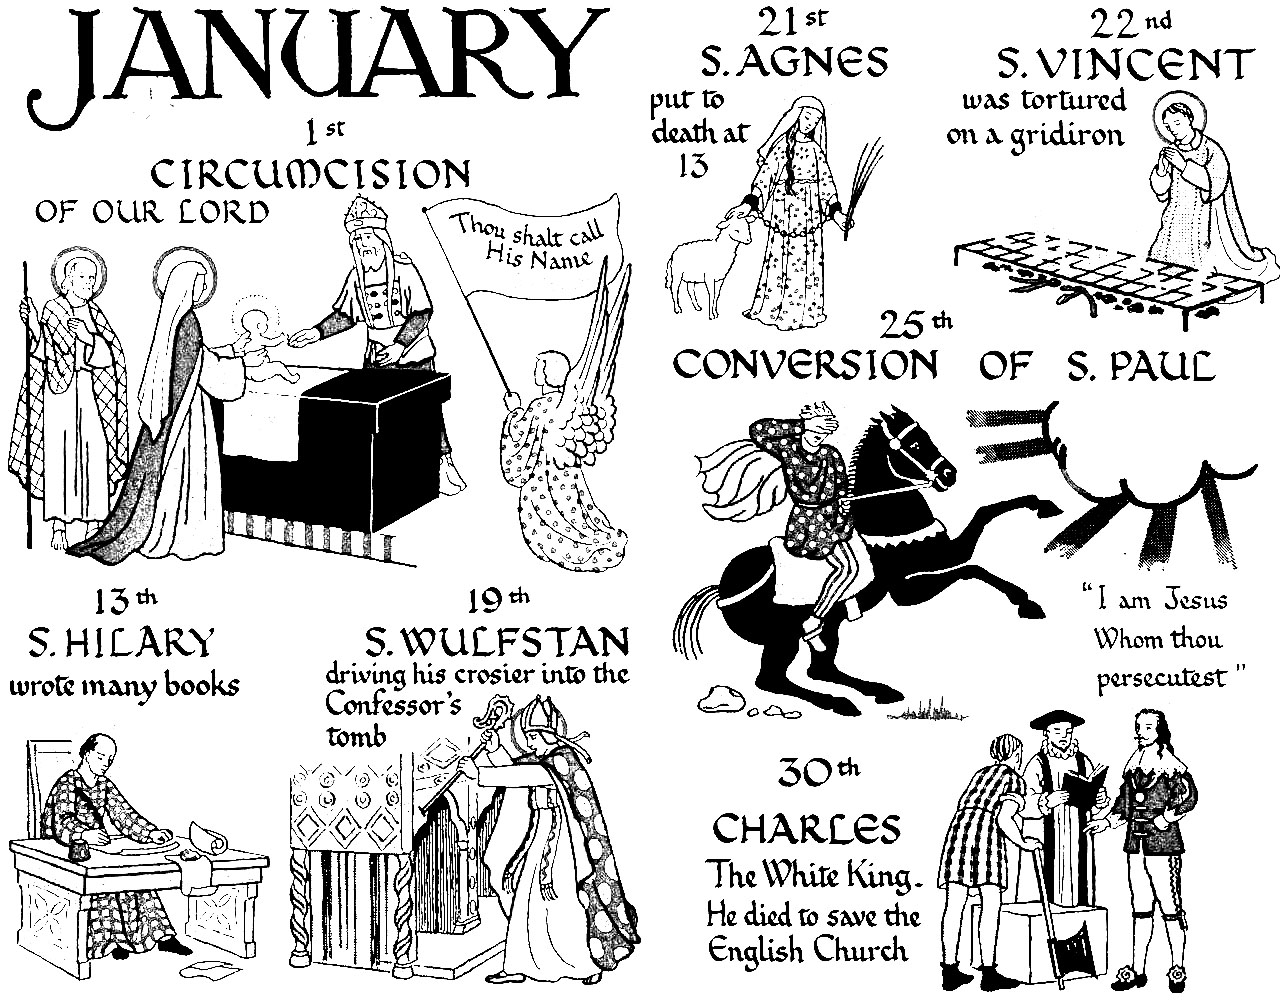 JANUARY
1st
CIRCUMCISION
OF OUR LORD
Thou shalt call
His Name
13th
S. HILARY
wrote many books
19th
S. WULFSTAN
driving his crosier into the
Confessor's
tomb
21st
S. AGNES
put to
death at
13
22nd
S. VINCENT
was tortured
on a gridiron
25th
CONVERSION OF S. PAUL
"I am Jesus
Whom thou
persecutest"
30th
CHARLES
The White King.
He died to save the
English Church